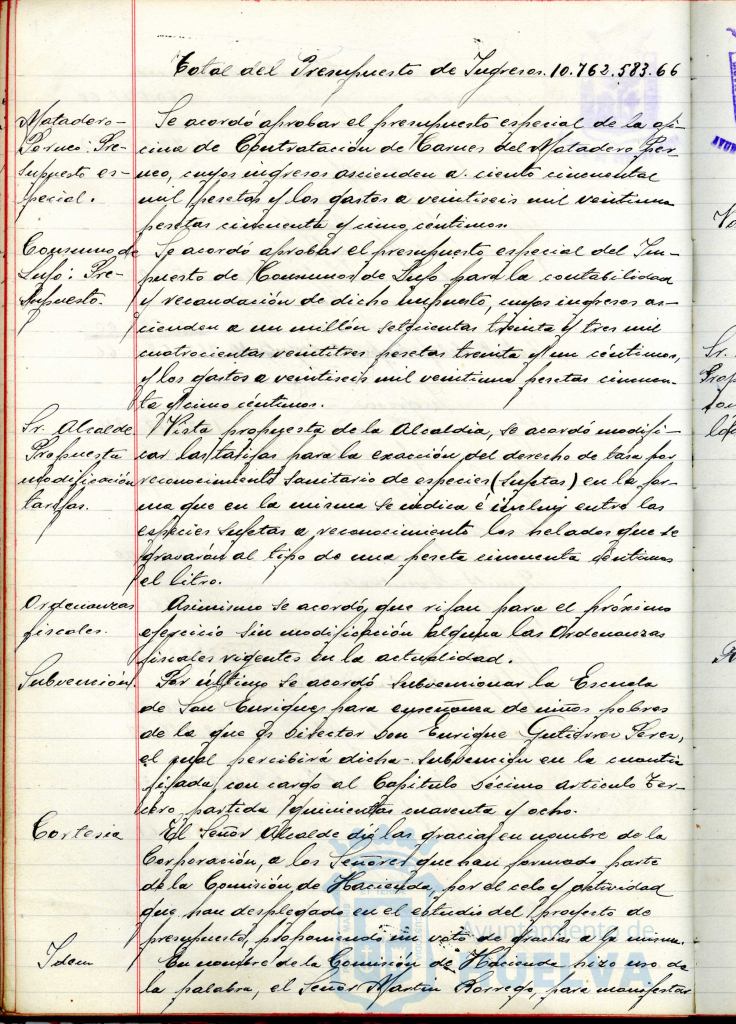 Total del Presupuesto de Ingresos. 10.762.583.66
Matadero-
Porcno: Pre-
supuesto es-
pecial.
Se acordó aprobar el presupuesto especial de la ofi-
cina de Contratación de Carnes del Matadero Por-
cno, cuyos ingresos ascienden a ciento cincuenta
mil pesetas y los gastos a veintiseis mil veintiuna
pesetas cincuenta y cinco céntimos.
Consumo de
Lujo: Pre-
supuesto.
Se acordó aprobar el presupuesto especial del Im-
puesto de Consumos de Lujo para la contabilidad
y recaudación de dicho impuesto, cuyos ingresos as-
cienden a un millón setecientas treinta y tres mil
cuatrocientas veintitres pesetas treinta y un céntimos,
y los gastos a veintiseis mil veintiuna pesetas cincuen-
ta y cinco céntimos.
Sr. Alcalde
Propuesta
modificación
tarifas.
Vista propuesta de la Alcaldia, se acordó modifi-
car las tarifas para la exacción del derecho de tasa por
reconocimiento sanitario de especies (sujetas) en la for-
ma que en la misma se indica é incluir entre las
especies sujetas a reconocimiento los helados que se
gravarán al tipo de una peseta cincuenta céntimos
el litro.
Ordenanzas
fiscales.
Asimismo se acordó, que rijan para el próximo
ejercicio sin modificación alguna las Ordenanzas
fiscales vigentes en la actualidad.
Subvención.
Por último se acordó subvencionar la Escuela
de San Enrique, para enseñanza de niños pobres
de la que es Director Don Enrique Gutiérrez Perez,
el cual percibirá dicha subvención en la cuantía
fijada, con cargo al Capitulo Décimo articulo Ter-
cero, partida quinientas cuarenta y ocho.
Cortesia
El Señor Alcalde dió las gracias en nombre de la
Corporación, a los Señores que han formado parte
de la Comisión de Hacienda, por el celo y actividad
que han desplegado en el estudio del proyecto de
presupuesto, proponiendo un voto de gracias a la misma.
Idem
En nombre de la Comisión de Hacienda hizo uso de
la palabra, el Señor Martin Borrego, para manifestar
Ayuntamiento de
HUELVA